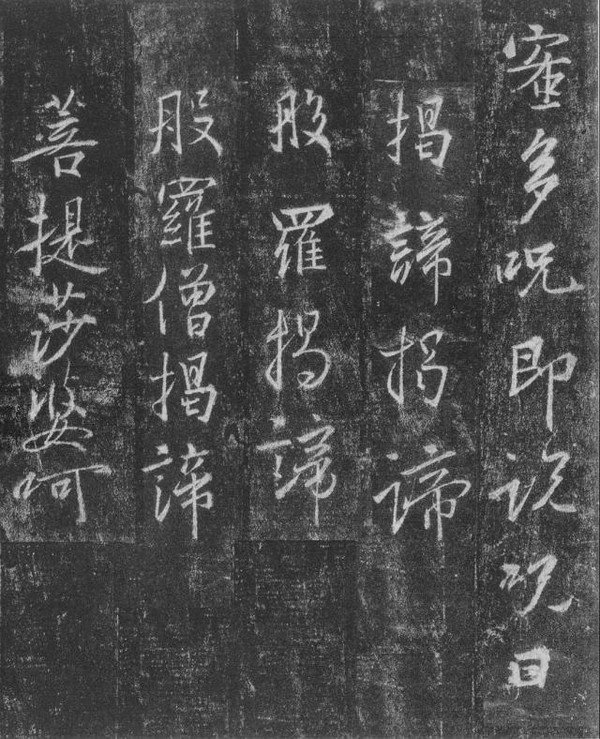 蜜多呪即說呪曰
揭諦揭諦
般羅揭諦
般羅僧揭諦
菩提莎婆呵